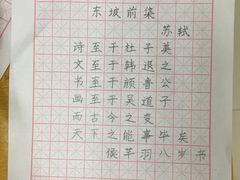 东坡前柒
苏轼
诗至于杜子美
文至于韩退之
书至于颜鲁公
画至于吴道子
而古今之变
天下之能事毕矣
侯芊羽八岁书